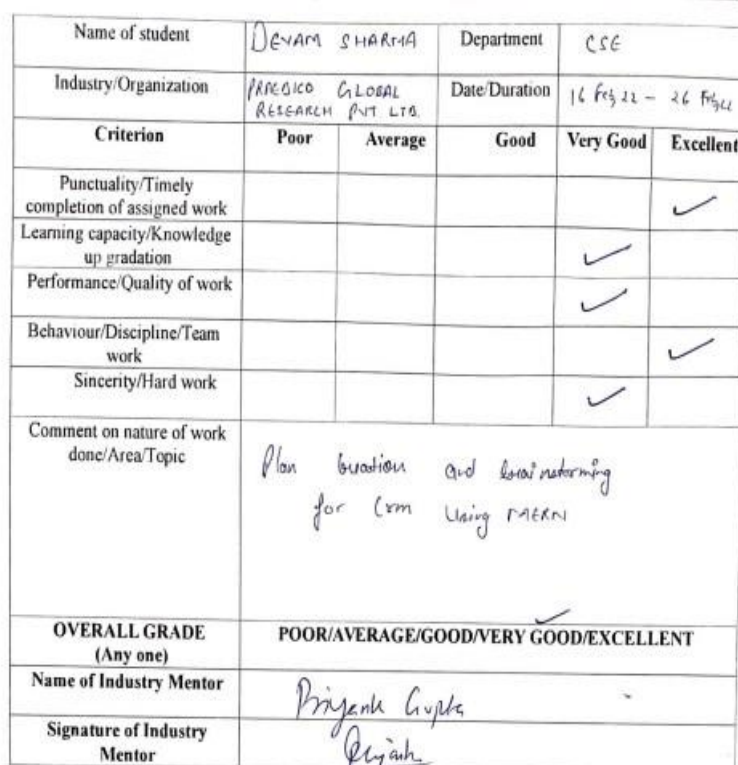 Name of student DEVAM SHARMA Department CSE
Industry/Organization PRAEDICO GLOBAL Date/Duration 16 Feb 22 - 26 Feb 22
RESEARCH PVT LTD.
Criterion Poor Average Good Very Good Excellent
Punctuality/Timely
completion of assigned work ✓
Learning capacity/Knowledge
up gradation ✓
Performance/Quality of work ✓
Behaviour/Discipline/Team
work ✓
Sincerity/Hard work ✓
Comment on nature of work
done/Area/Topic
Plan and brainstorming
for Crm Using MERN
OVERALL GRADE POOR/AVERAGE/GOOD/VERY GOOD/EXCELLENT
(Any one) ✓
Name of Industry Mentor Priyank Gupta
Signature of Industry Priyank
Mentor